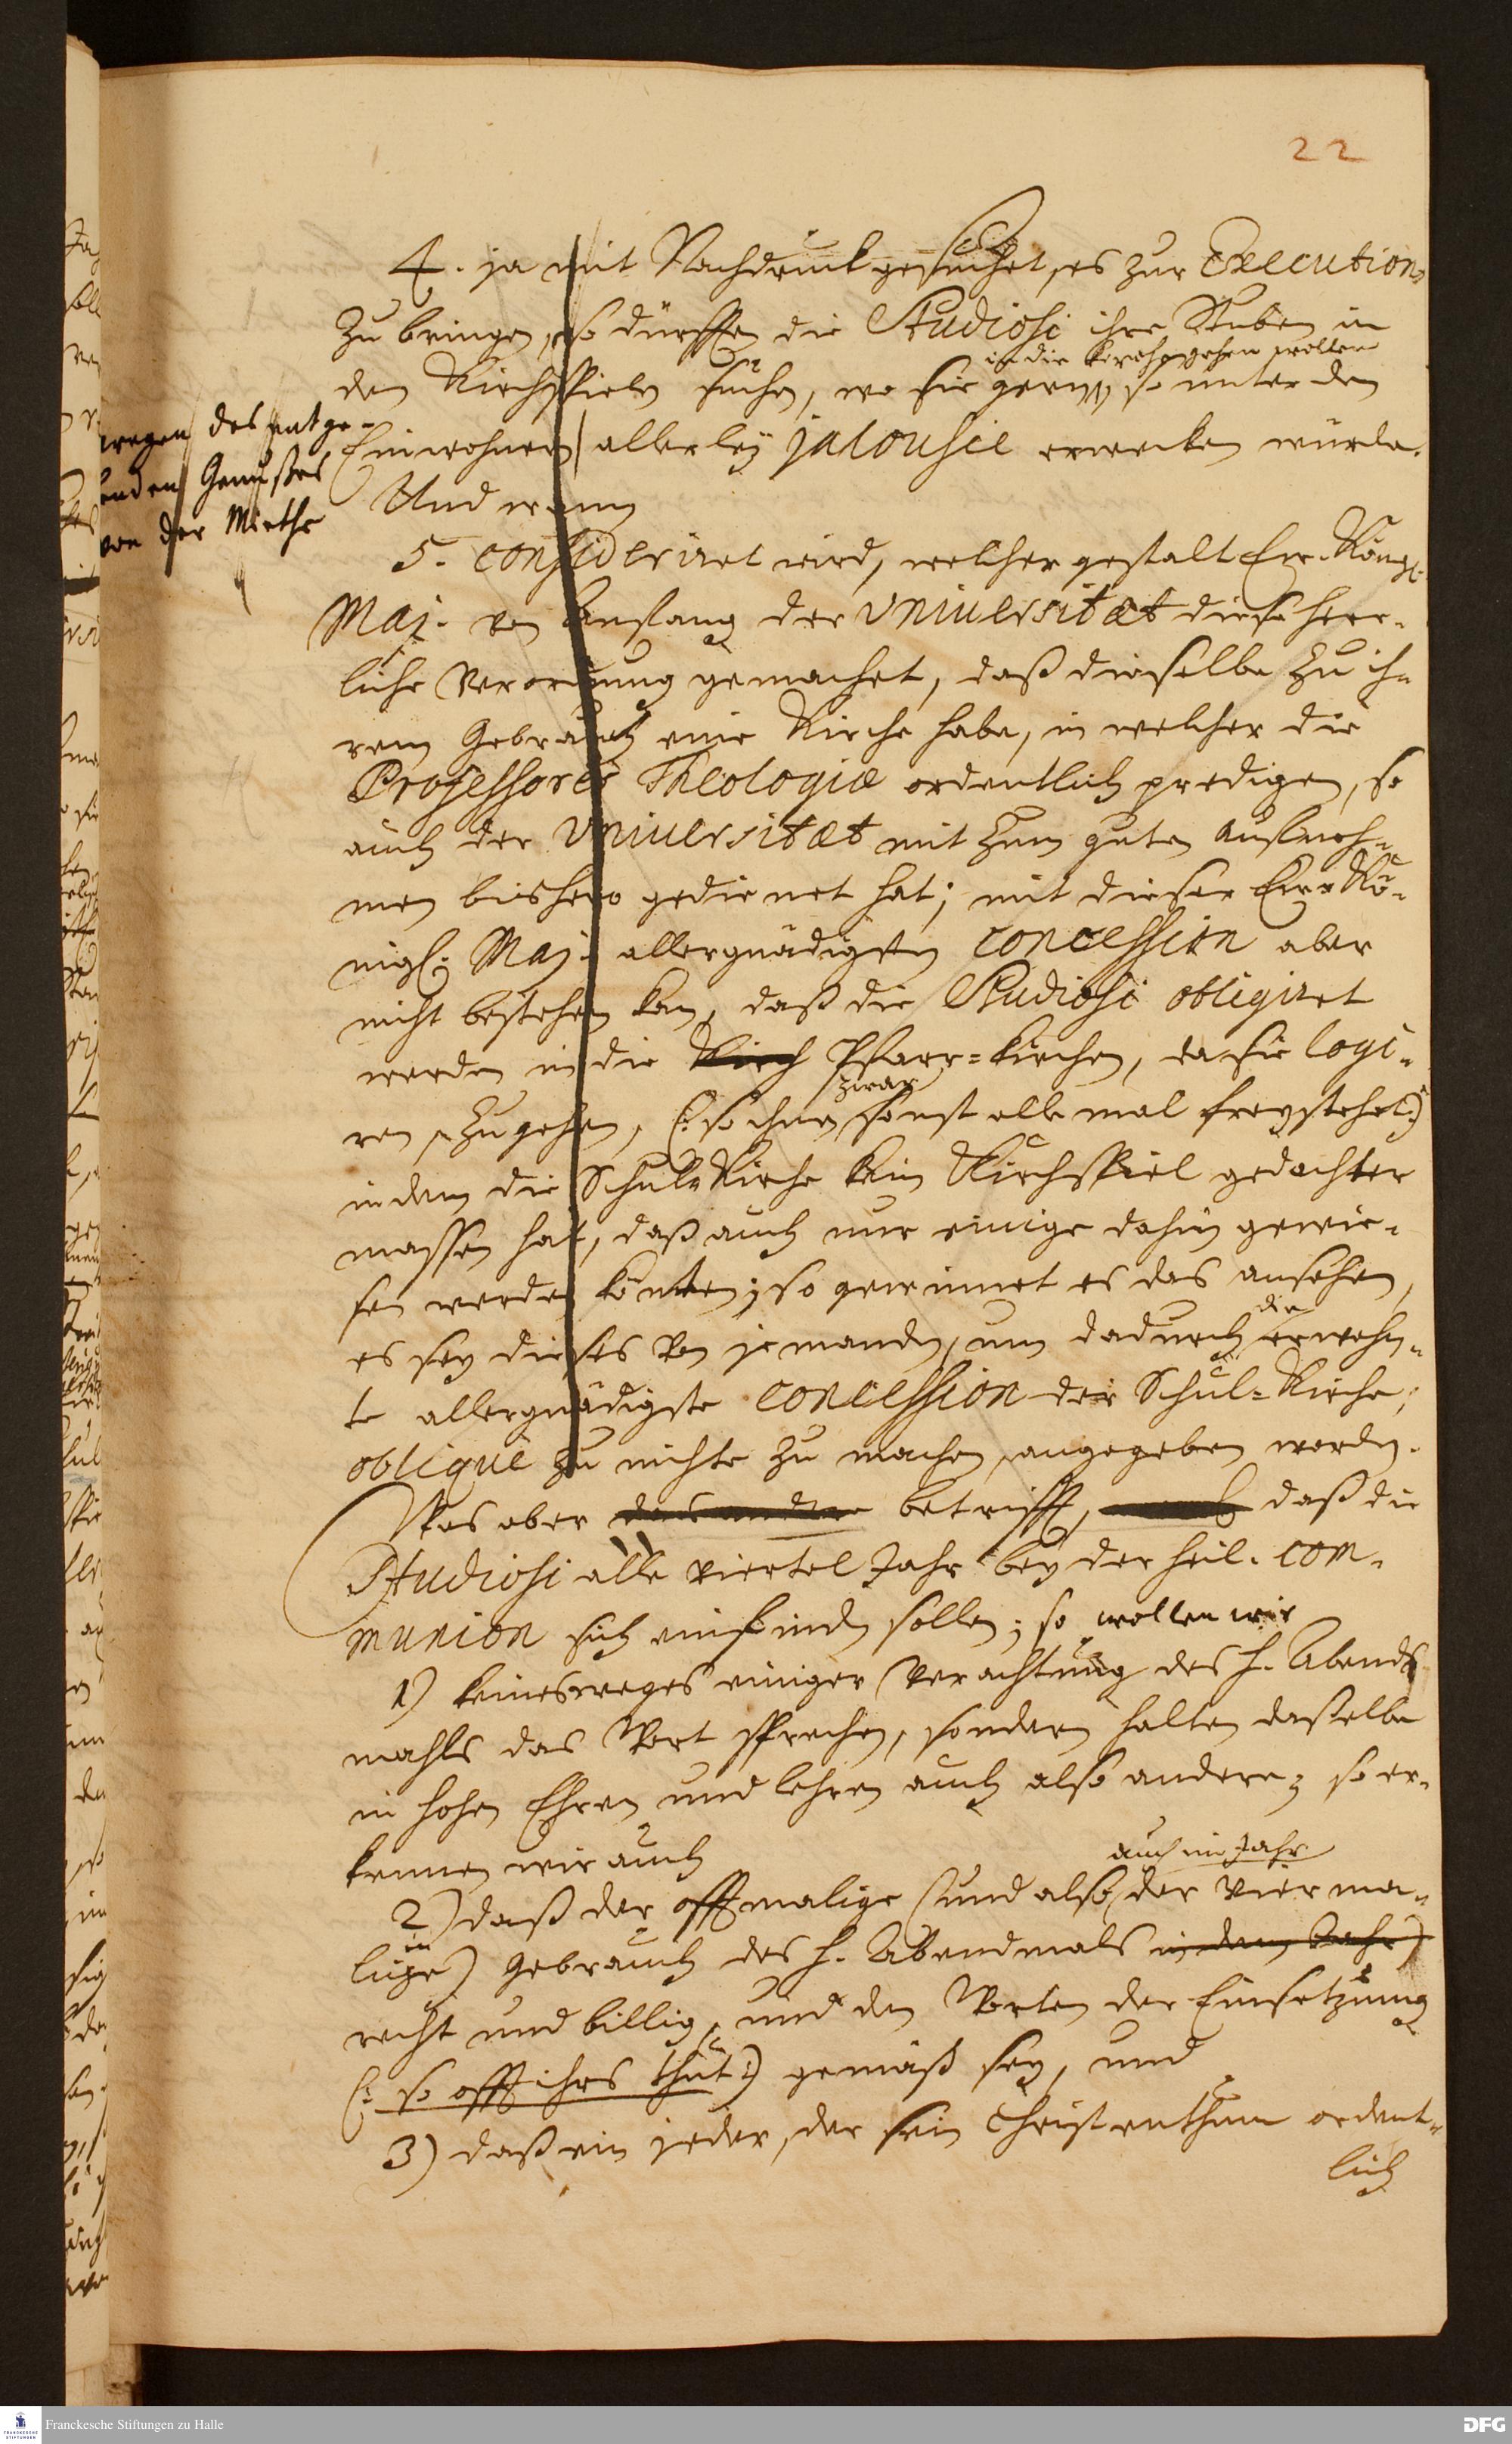 22
4. ja mit Nachdruck gesuchet, es zur Execution
zu bringen, so dürfften die Studiosi ihre Stuben in
in die Kirche gehen wollen
den Kirchspielen suchen, wo sie gern, so unter den
wegen des entge-
henden Genußes
von der Miethe
Einwohnern allerley jalousie erwecken würde.
Und wenn
5. consideriret wird, welcher gestalt Ew. Königl.
Maj. von Anfang der Universitæt diese herr-
liche Verordnung gemachet, daß dieselbe zu ih-
rem Gebrauch eine Kirche habe, in welcher die
Professores Theologiæ ordentlich predigen, so
auch der Universitæt mit zum guten Aufneh-
men bishero gedienet hat; mit dieser Ew. Kö-
nigl. Maj. allergnädigsten concession aber
nicht bestehen kan, daß die Studiosi obligiret
werden in die Kirch Pfarr-Kirchen, da sie logi-
zwar
ren, zugehen, (: so ihnen sonst alle mal freystehet :)
indem die Schul-Kirche kein Kirchspiel gedachter
massen hat, daß auch nur einige dahin gewie-
sen werden könten; so gewinnet es das ansehen,
die
es sey dieses von jemanden, um dadurch erwehn-
te allergnädigste concession der Schul-Kirche,
oblique zu nichte zu machen, angegeben worden.
Was aber das andere betrifft, daß die
Studiosi alle viertel Jahr bey der heil. com-
munion sich einfinden sollen; so wollen wir
1) keinesweges einiger Verachtung des H. Abend-
mahls das Wort sprechen, sondern halten dasselbe
in hohen Ehren und lehren auch also andere; so er-
kennen wir auch
auch im Jahr
2) daß der offtmalige (und also der vier ma-
lige) Gebrauch des H. Abendmals in dem Jahr)
recht und billig, und den Worten der Einsetzung
(: so offt ihrs thut :) gemäß sey, und
3) daß ein jeder, der sein Christenthum ordent-
lich
Franckesche Stiftungen zu Halle
DFG